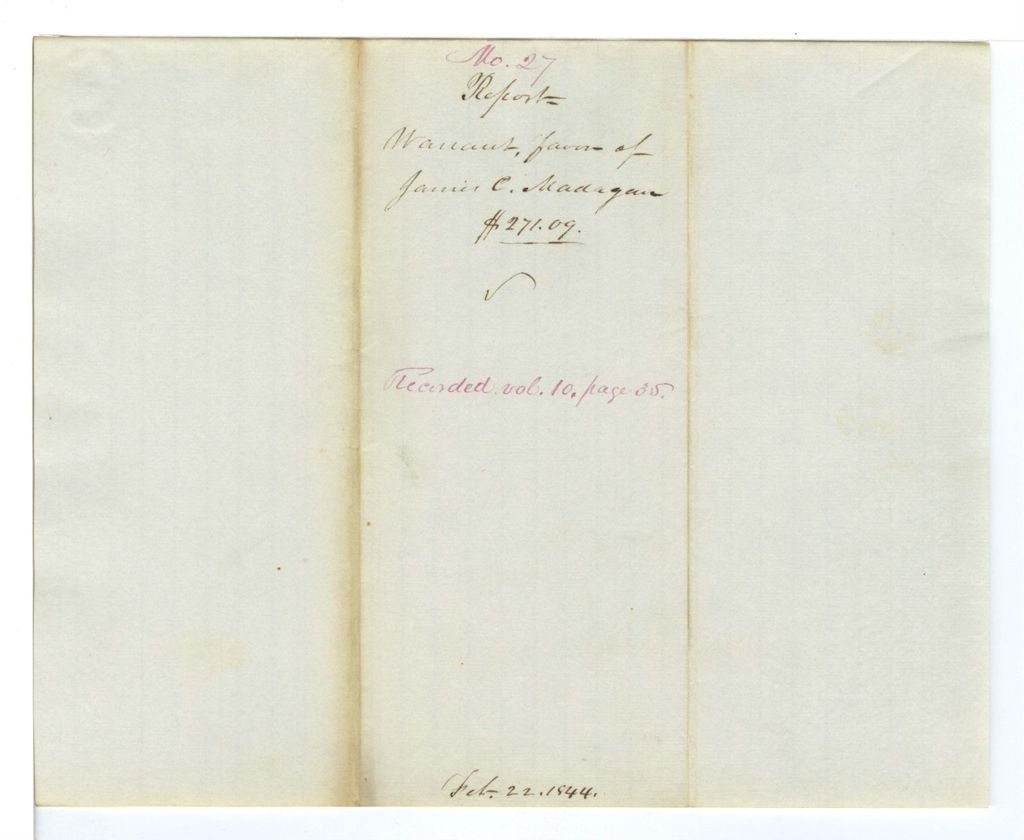 No. 27
Report
Warrant, favor of
James C. Madagan
$271.09.
Recorded vol. 10, page 35.
Feb. 22. 1844.